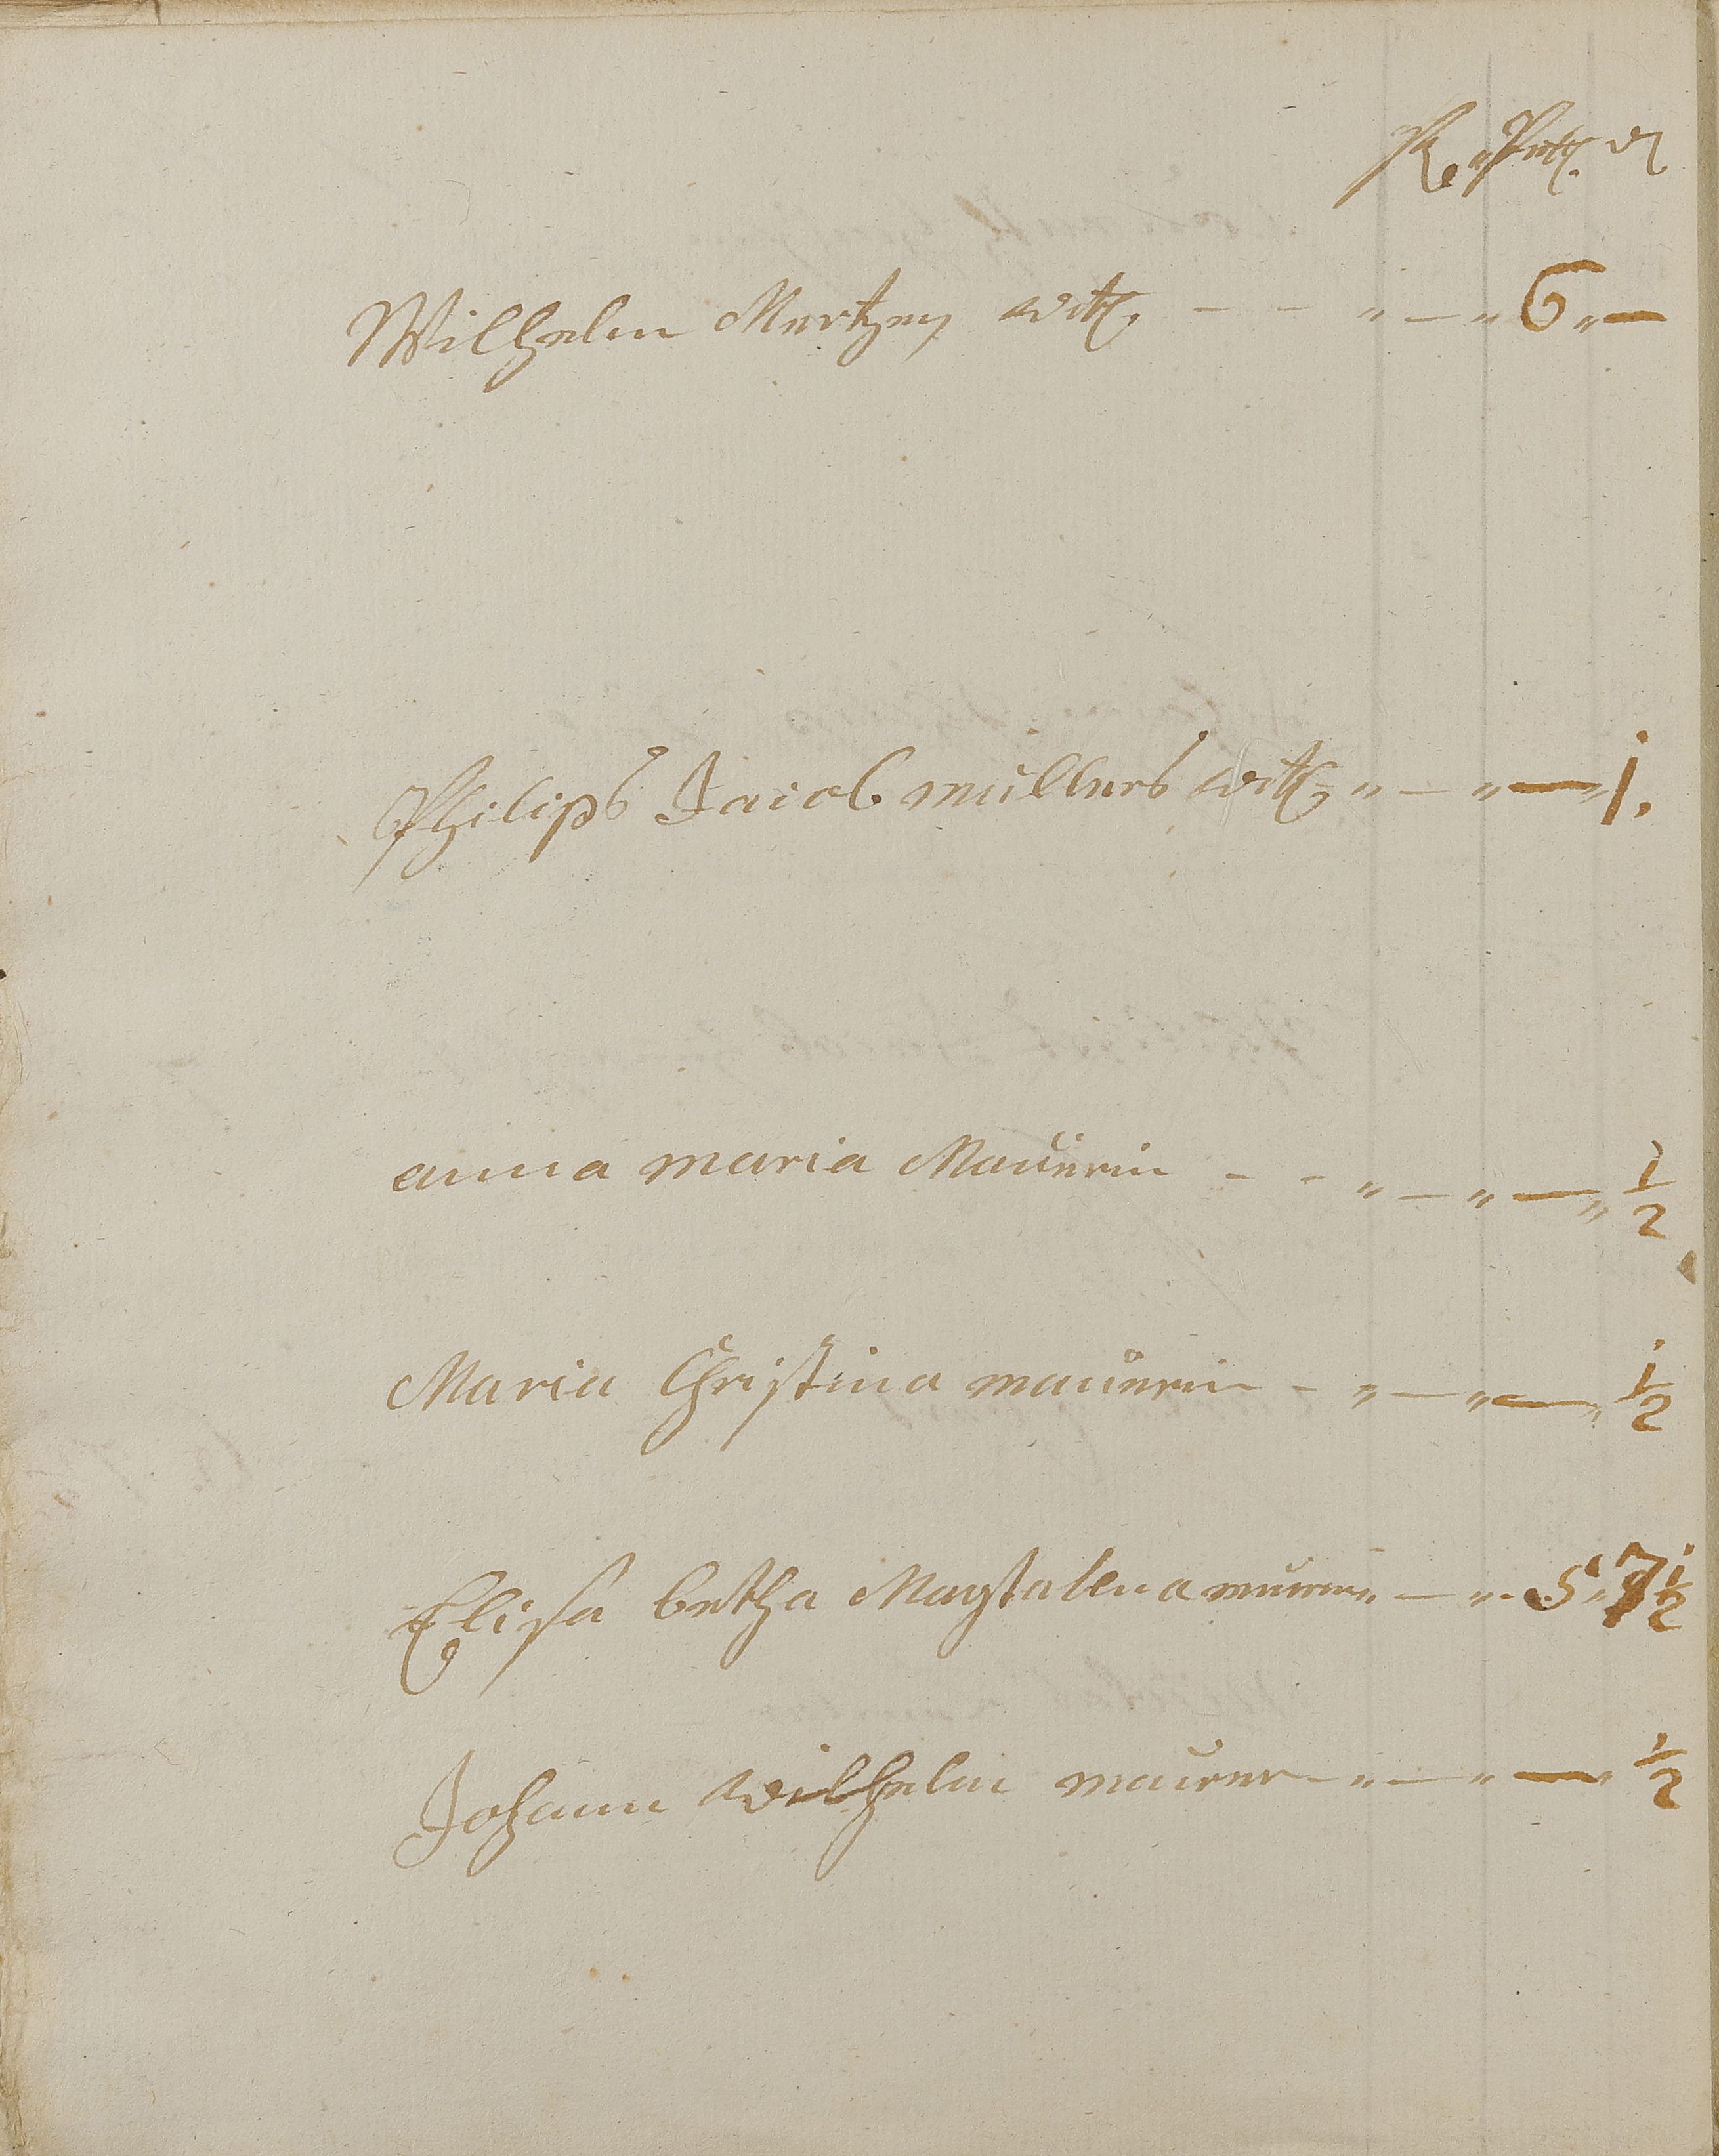 R. Pett. d
Wilhelm Mertzen witt. - - „ — „ 6 „ —
Philips Jacob müllers witt. „ — „ — „ 1.
anna maria Maŭerin - - „ — „ — „ 1/2
Maria Christina maŭerin - „ — „ — „ 1/2
Elisa betha Magtalena „ — „ 5 „ 7 1/2
Johann wilhelm maŭrer - „ — „ — „ 1/2